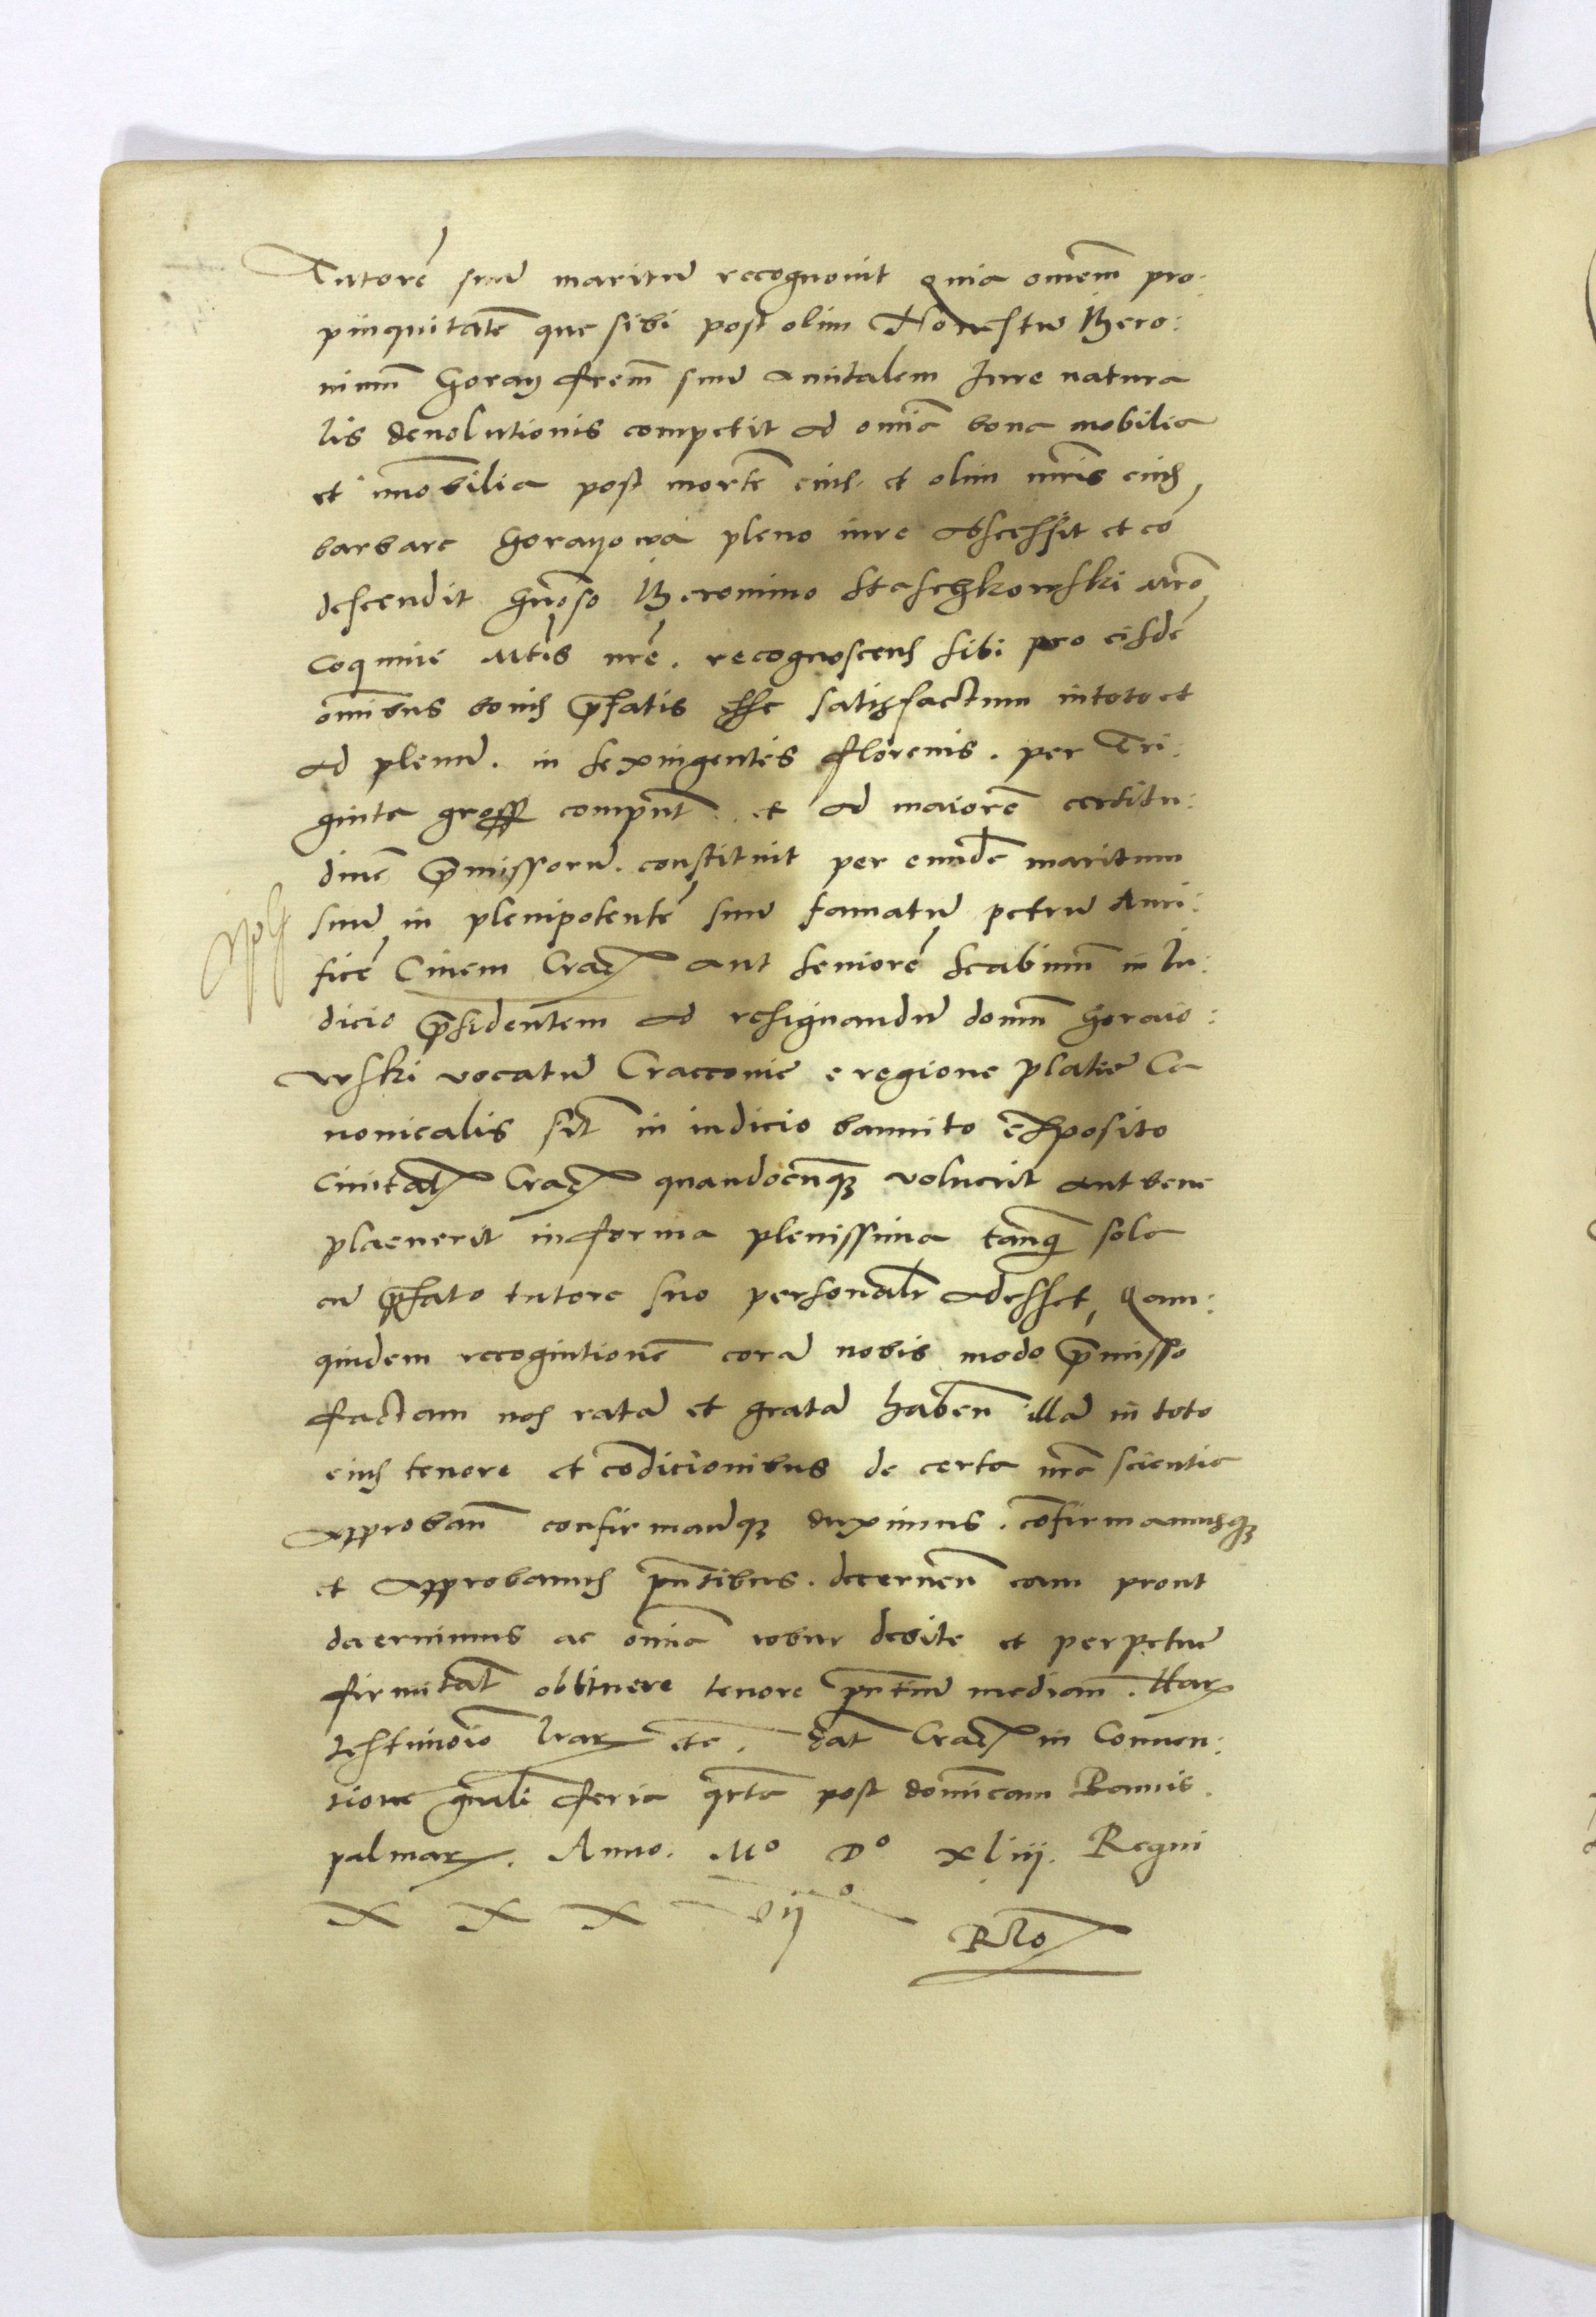 Tutorē suū maritū recognovit Quia omnem̄ pro:
pinquitatē que sibi post olim Honestū Hiero:
nimum̄ Goray fr̄em̄ suū Amitalem Jure natura
lis devolutionis competit ad omia bona mobilia
et īmobilia post mortē eius et olim mr̄is eius
barbare Gorayowa pleno iure abscessit et cō
descendit Gn̄oso Hieronimo Staschkowski Mr̄o
Coquine Mt̄is nr̄e. recognoscens sibi pro eisdē
om̄ibus bonis p̄fatis esse satisfactum in toto et
ad plenū. in sexingentis florenis. per Tri:
ginta gross comput̄. et ad maiorē certitu:
dinē p̄missorū. constituit per eundē maritum
suū in plenipotentē suū famatū petrū Auri:
ficē Civem Crac̄ aut seniorē scabinum̄ in Ju:
dicio p̄sidentem ad resignandū domum̄ Goraio:
wski vocatū Cracconie e regione platee Ca
nonicalis sit̄ in iudicio bannito exposito
Civitat̄ Crac̄ quandocunq3 voluerit aut bene
placuerit in forma plenissima tanq̄ sola
cū p̄fato tutore suo personalr̄ adesset, Qam:
quidem recognitionē corā nobis modo p̄misso
factam nos ratā et gratā haben̄ illā in toto
eius tenore et cōdicionibus de certa nr̄a scientia
approban̄ confirmandq3 duximus. cōfirmamusq3
et approbamus p̄ntibus. decernen̄ eam prout
decernimus ac om̄ia robur debite et perpetue
firmitat̄ obtinere tenore p̄ntiū median̄. Harꝝ
testimoīo l̄rarꝝ etc. Dat̄ Crac̄ in Conven:
tione gn̄ali feria q̄rta post dominicam Ramis
palmarꝝ. Anno. Mo Do xliij. Regni
X X X vijo